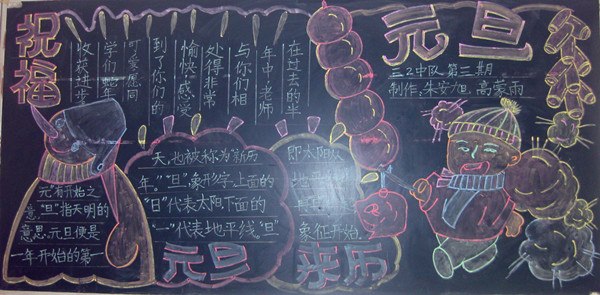 祝福
在过去的半
年中,老师
与你们相
处得非常
愉快,感受
到了你们的
可爱,愿同
学们蛇年
收获进步
元旦
三2中队 第三期
制作:朱安旭、高蒙雨
"元"有开始之
意,"旦"指天明的
意思.元旦便是
一年开始的第一
天,也被称为"新历
年"."旦":象形字,上面的
"日"代表太阳,下面的
"一"代表地平线."旦"
即太阳从
地平
象征开始.
元旦
来历